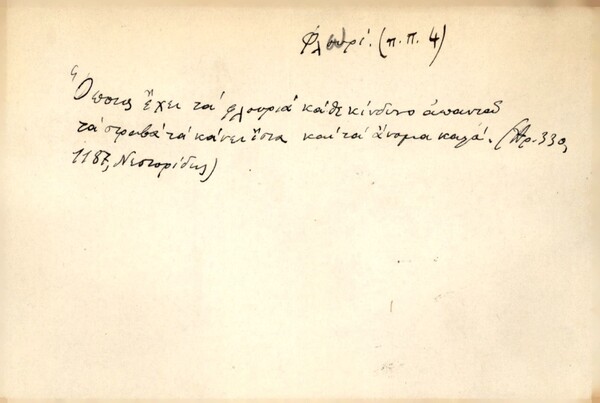 Φλουρί. (π.π. 4)
Ὅποιος ἔχει τά φλουριά κάθε κίνδυνο ἀπαντοῦ
τά στραβά τά κάνει ἴσια καί τά ἄνομα καλά. (Ἀρ. 330,
1187, Νεστορίδης)